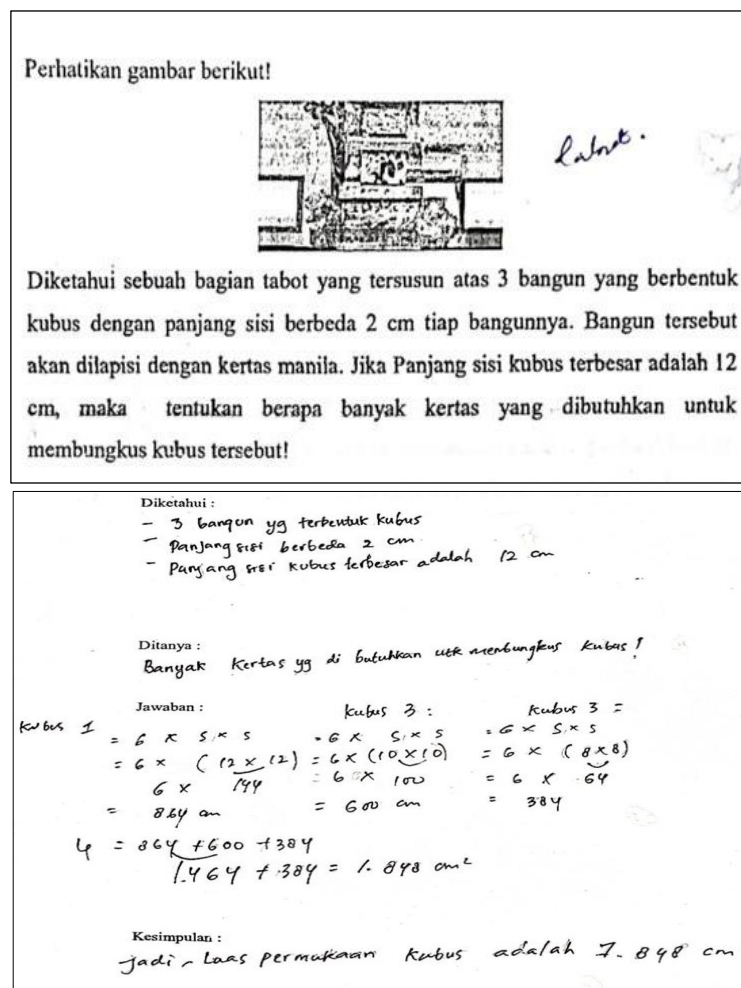 Perhatikan gambar berikut!
Diketahui sebuah bagian tabot yang tersusun atas 3 bangun yang berbentuk
kubus dengan panjang sisi berbeda 2 cm tiap bangunnya. Bangun tersebut
akan dilapisi dengan kertas manila. Jika Panjang sisi kubus terbesar adalah 12
cm, maka tentukan berapa banyak kertas yang dibutuhkan untuk
membungkus kubus tersebut!
Diketahui :
- 3 bangun yg terbentuk kubus
- Panjang sisi berbeda 2 cm
- Panjang sisi kubus terbesar adalah 12 cm
Ditanya :
Banyak kertas yg di butuhkan utk membungkus kubus!
Jawaban : kubus 3 : kubus 3 =
kubus 1 = 6 x s x s = 6 x s x s = 6 x s x s
= 6 x (12 x 12) = 6 x (10 x 10) = 6 x (8 x 8)
6 x 144 = 6 x 100 = 6 x 64
= 864 cm = 600 cm = 384
= 864 + 600 + 384
1.464 + 384 = 1.848 cm²
Kesimpulan :
Jadi, Luas permukaan kubus adalah 1.848 cm